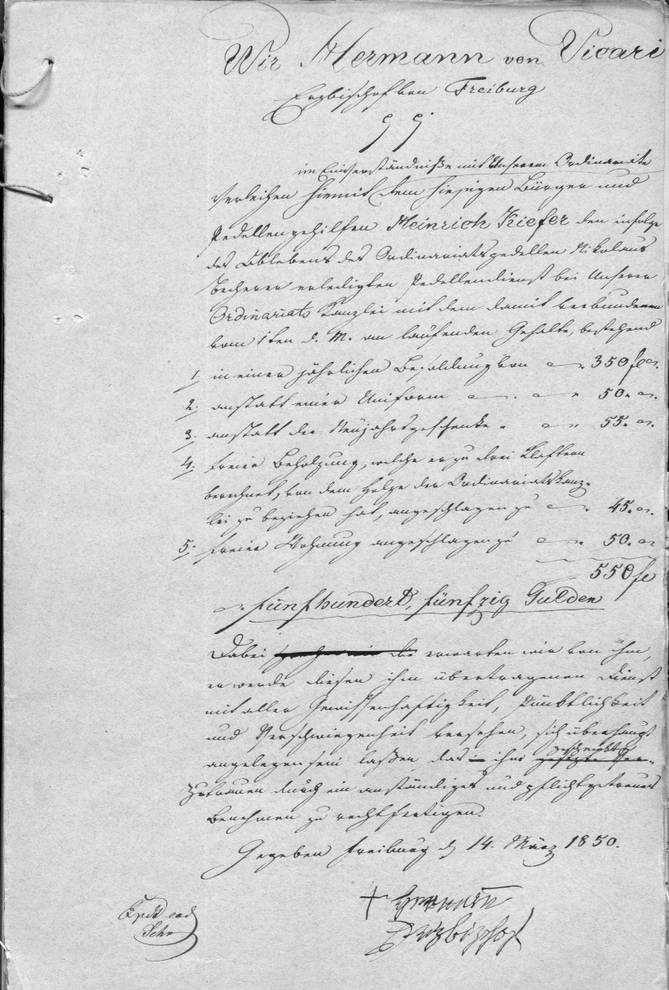 Wir Hermann von Vicari
Erzbischof von Freiburg
im Einverständniße mit Unserem Ordinariate
verleihen hiemit dem hiesigen Bürger und
Pedellengehilfen Heinrich Kiefer den infolge
des Ablebens des Ordinariatspedellen Nikolaus
erledigten Pedellendienst bei Unserer
Ordinariats Kanzlei mit dem damit verbundenen
vom 1ten d. M. an laufenden Gehalte, bestehend
1. in einer jährlichen Besoldung von 350 f
2. anstatt einer Uniform 50.
3. anstatt der Neujahrsgeschenke 55.
4. freier Beholzung, welche er zu drei Klaftern
berechnet, von dem Holze der Ordinariatskanz-
lei zu beziehen hat, angeschlagen zu 45.
5. freier Wohnung angeschlagen zu 50.
550 f
fünfhundert, fünfzig Gulden
Dabei erwarten wir von ihm,
er werde diesen ihm übertragenen Dienst
mit aller Gewissenhaftigkeit, Pünktlichkeit
und Verschwiegenheit versehen, sich überhaupt
angelegen sein laßen das ihm geschenkte
Zutrauen durch ein anständiges und pflichtgetreues
Benehmen zu rechtfertigen.
Gegeben Freiburg d 14. März 1850.
+ Hermann
Erzbischof